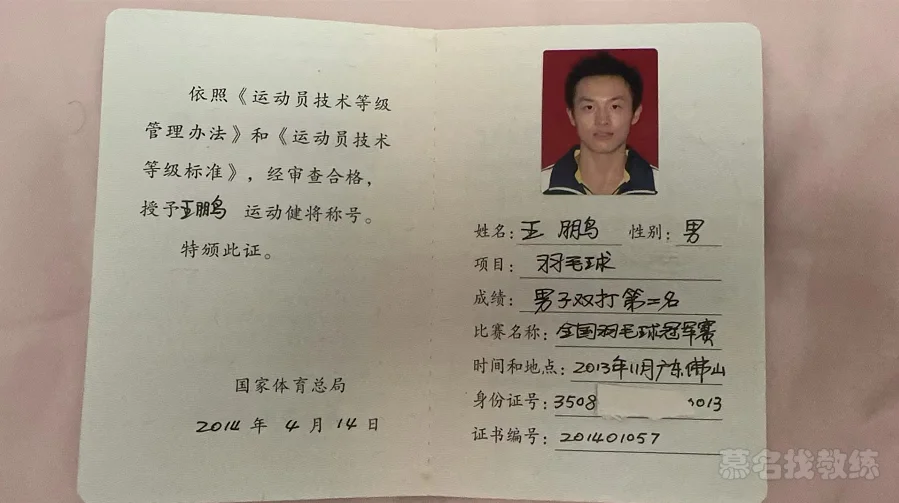 依照《运动员技术等级
管理办法》和《运动员技术
等级标准》，经审查合格，
授予王鹏 运动健将称号。
特颁此证。
国家体育总局
2014 年 4 月 14 日
姓名：王 鹏 性别：男
项目：羽毛球
成绩：男子双打第二名
比赛名称：全国羽毛球冠军赛
时间和地点：2013年11月广东佛山
身份证号：3508 013
证书编号：201401057
慕名找教练